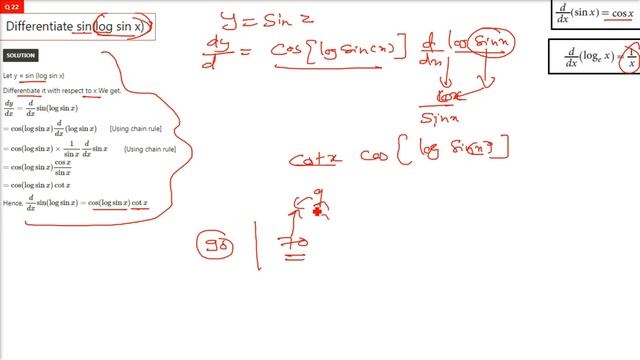 Q 22
Differentiate sin(log sin x)
SOLUTION
Let y = sin (log sin x)
Differentiate it with respect to x We get,
dy/dx = d/dx sin(log sin x)
= cos(log sin x) d/dx (log sin x) [Using chain rule]
= cos(log sin x) × 1/sin x d/dx sin x [Using chain rule]
= cos(log sin x) cos x/sin x
= cos(log sin x) cot x
Hence, d/dx sin(log sin x) = cos(log sin x) cot x
y = sin z
dy/d = cos{log sin(x)} d/dx log sinx
cosx/sinx
cotx cos{log sin(x)}
90 | 70
d/dx (sin x) = cos x
d/dx (logₑ x) = 1/x